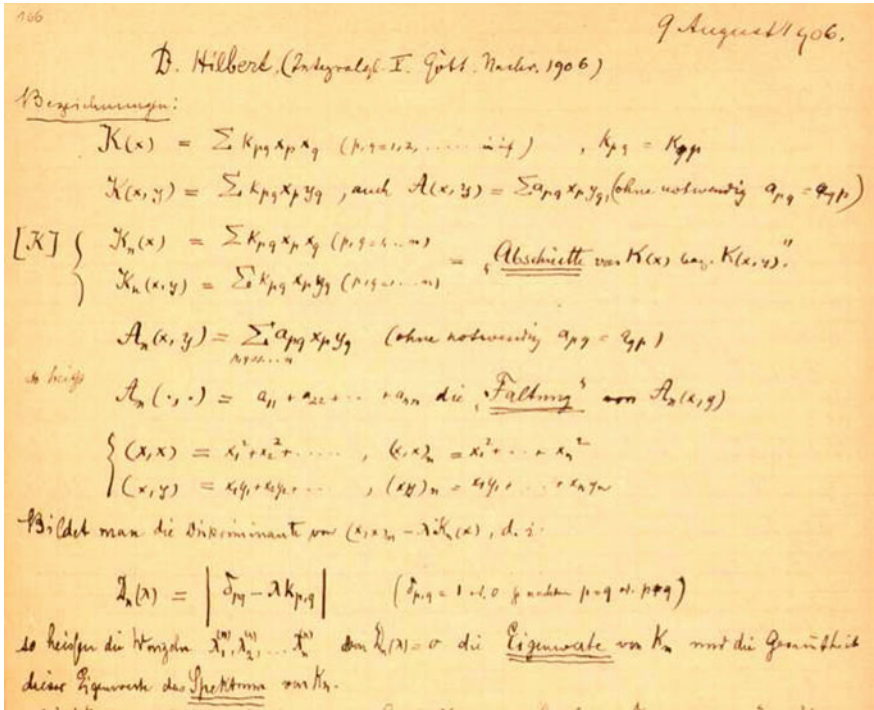 166
9 August 1906.
D. Hilbert, (Integralgl. Gött. Nachr. 1906)
Bezeichnungen:
K(x) = Σ k_pq x_p x_q (p,q=1,2,..... inf) , k_pq = k_qp
K(x,y) = Σ k_pq x_p y_q , auch A(x,y) = Σ a_pq x_p y_q, (ohne notwendig a_pq = a_qp)
[K] { K_n(x) = Σ k_pq x_p x_q (p,q=1...n)
K_n(x,y) = Σ k_pq x_p y_q (p,q=1,...n) = „Abschnitte von K(x) bez. K(x,y)".
A_n(x,y) = Σ a_pq x_p y_q (ohne notwendig a_pq = a_qp)
p,q=1,...n
es heiße A_n(·,·) = a_11 + a_22 + ·· + a_nn die „Faltung" von A_n(x,y)
{ (x,x) = x_1² + x_2² + ..... , (x,x)_n = x_1² + ··· + x_n²
(x,y) = x_1y_1 + x_2y_2 + ··· , (xy)_n = x_1y_1 + ... + x_ny_n
Bildet man die Diskriminante von (x,x)_n − λK_n(x), d. i.
D_n(λ) = | δ_pq − λ k_p,q | (δ_p,q = 1 od. 0 je nachdem p=q od. p≠q)
so heißen die Wurzeln λ_1^(n), λ_2^(n), ... λ_n^(n) von D_n(λ)=0 die Eigenwerte von K_n und die Gesamtheit
dieser Eigenwerte das Spektrum von K_n.